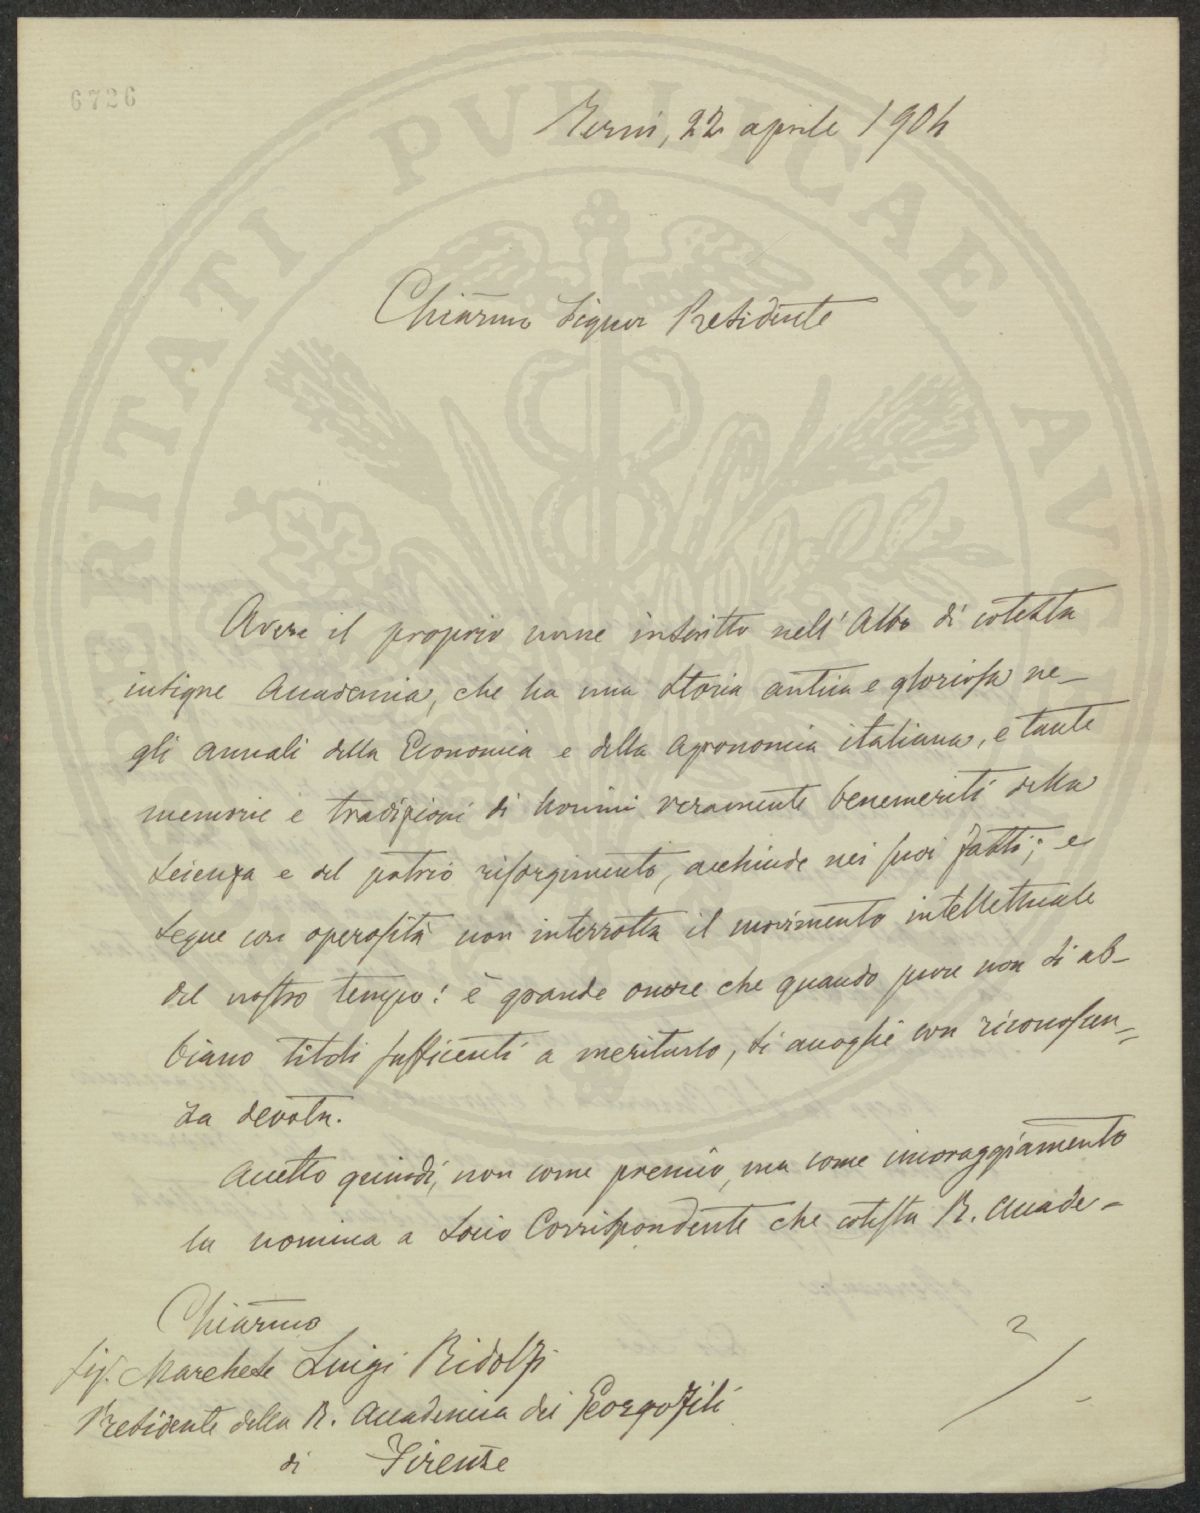 6726
PROSPERITATI PVBLICAE AVGENDAE
Terni, 22 aprile 1904
Chiarmo Signor Presidente
Avere il proprio nome inscritto nell'Albo di cotesta
insigne Accademia, che ha una storia antica e gloriosa ne-
gli annali della Economia e della Agronomia italiana, e tante
memorie e tradizioni di uomini veramente benemeriti della
scienza e del patrio risorgimento, acchiude nei suoi fatti; e
segue con operosità non interrotta il movimento intellettuale
del nostro tempo: è grande onore che quando pure non si ab-
biano titoli sufficenti a meritarlo, si accoglie con riconoscen-
za devota.
Accetto quindi, non come premio, ma come incoraggiamento
la nomina a Socio Corrispondente che cotesta R. Accade-
Chiarmo
Sig. Marchese Luigi Ridolfi
Presidente della R. Accademia dei Georgofili
di Firenze